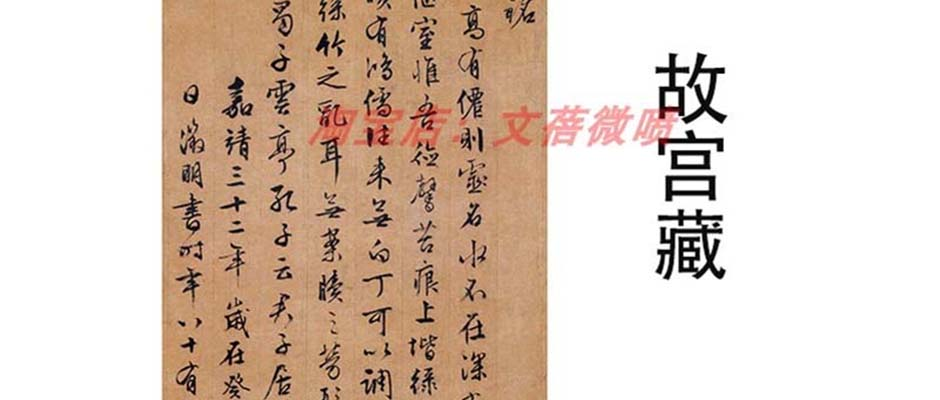 銘
高有僊則靈名水不在深
室惟吾德馨苔痕上堦綠
有鴻儒往来無白丁可以調
絲竹之亂耳無案牘之勞形
蜀子雲亭孔子云君子居
嘉靖三十二年歲在癸
日徵明書時年八十有
淘宝店：文蓓微喷
故宫藏